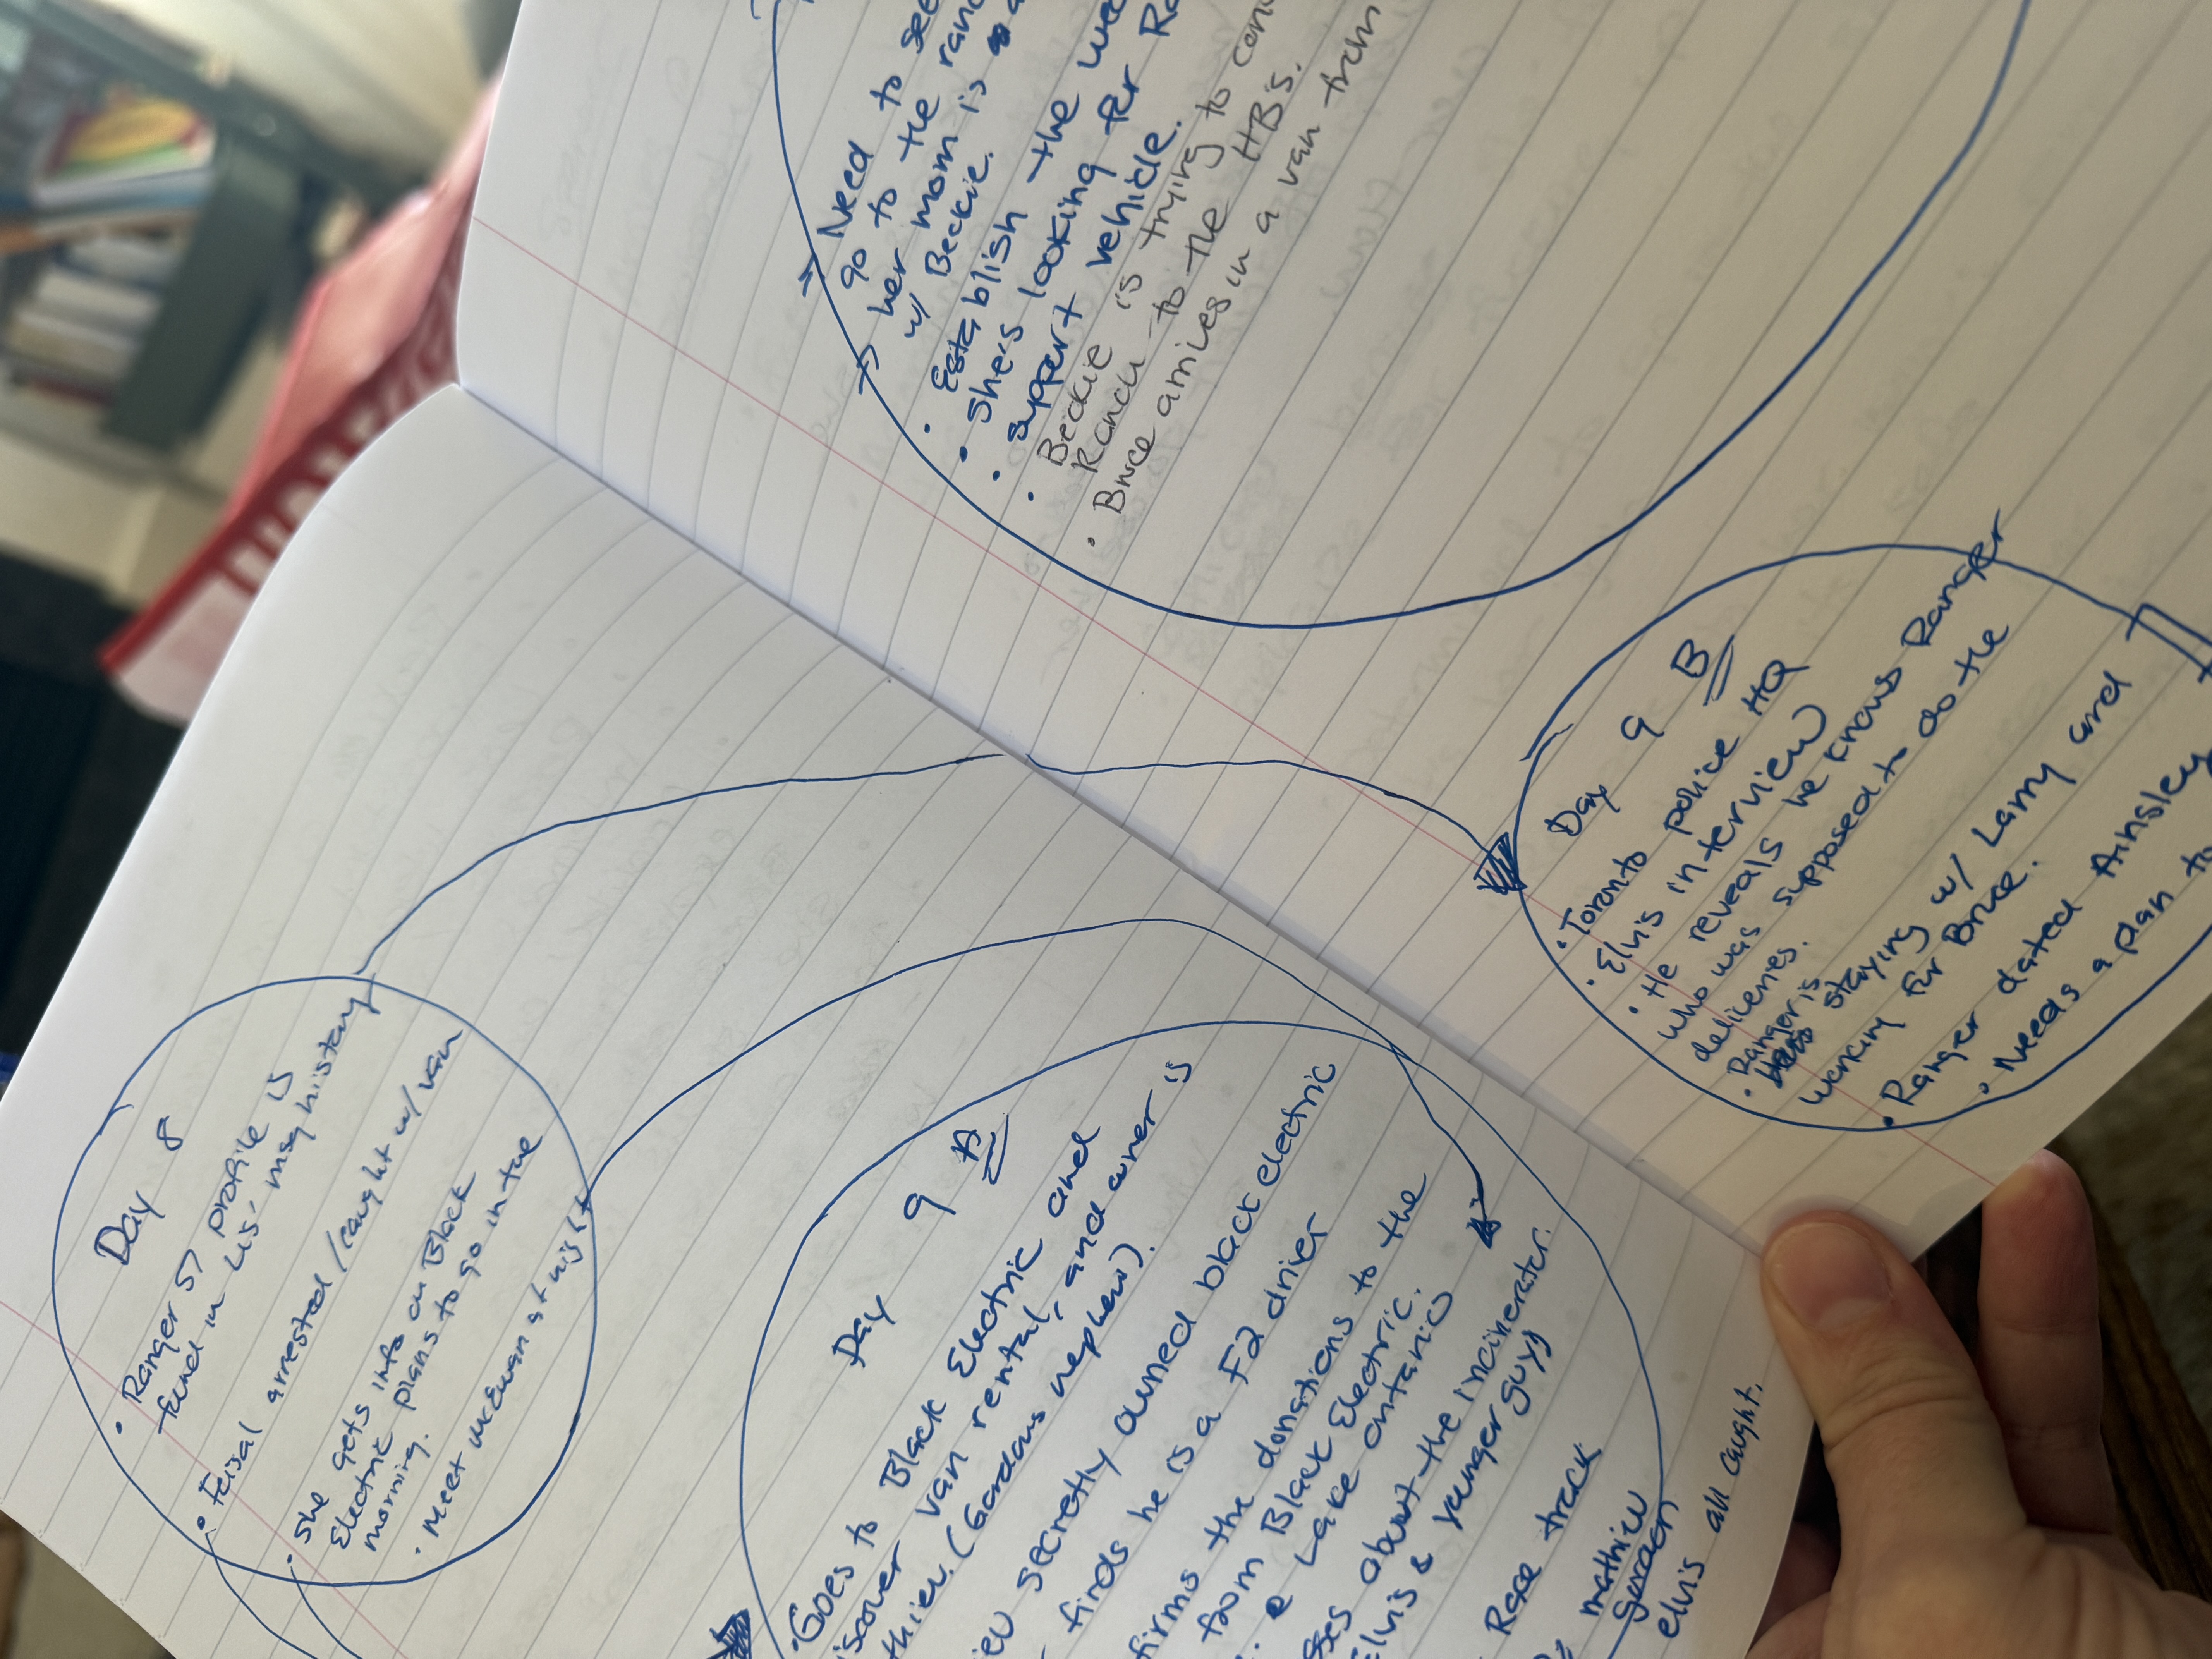 Day 8
• Ranger 57 profile is
found in Lis' msg history
• Feisal arrested / caught w/ van
• She gets info on Black
Electric plans to go in the
morning.
• Meet McEwan at night
Day 9 A
• Goes to Black Electric and
iscover van rental, and owner is
thieu. (Gordons nephew).
ieu secretly owned black electric
finds he is a F2 driver
firms the donations to the
from Black Electric.
e Lake Ontario
sses about the incinerator.
Elvis & younger guy)
Race track
mathieu
Gordon
elvis all caught.
→ Need to see
go to the ran
→ her mom is a
w/ Beckie.
• Establish the wee
• She's looking for Ra
• support vehicle.
• Beckie is trying to con
Ranch to the HB's.
• Bruce arrives in a van from
Day 9 B
• Toronto police HQ
• Elvis interview
• He reveals he knows Ranger
who was supposed to do the
deliveries.
• Ranger is
staying w/ Larry and
working for Bruce.
• Ranger dated Ainsley
• Needs a plan to